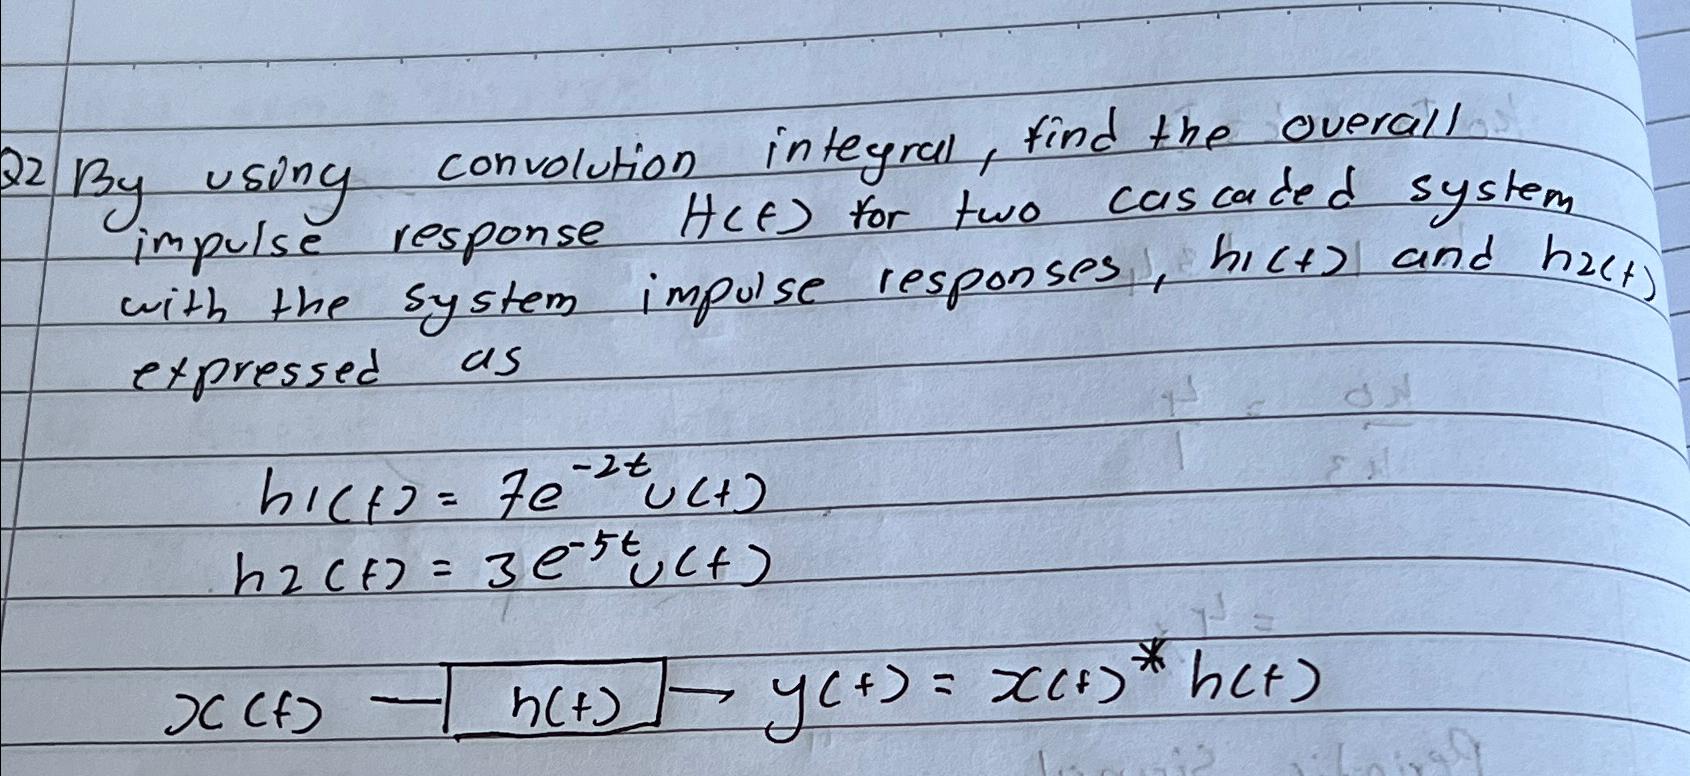 Q2 By using convolution integral, find the overall
impulse response H(t) for two cascaded system
with the system impulse responses, h1(t) and h2(t)
expressed as
h1(t) = 7e^-2t u(t)
h2(t) = 3e^-5t u(t)
x(t) — h(t) → y(t) = x(t) * h(t)